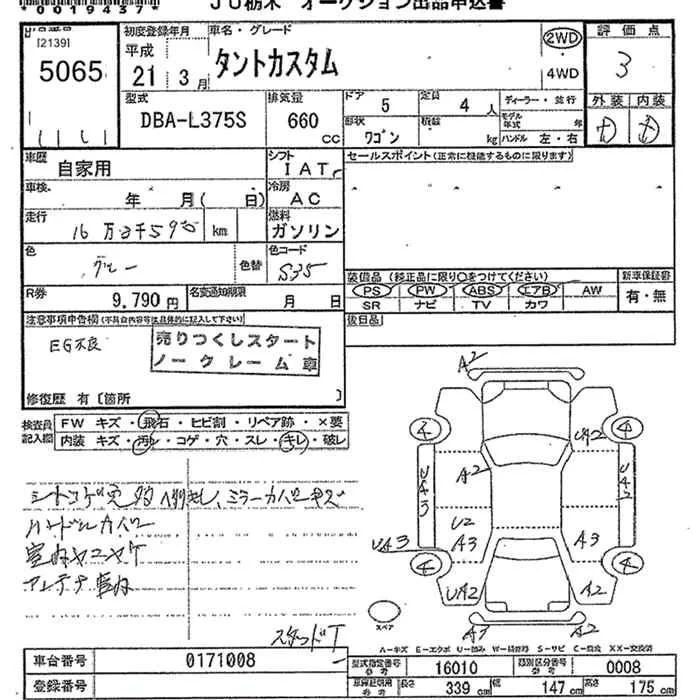 0019437
JU栃木 オークション出品申込書
[2139]
5065
初度登録年月
平成
21 3月
車名・グレード
タントカスタム
2WD
4WD
評価点
3
外装 内装
型式
DBA-L375S
排気量
660
CC
ドア
5
定員
4 人
形状
ワゴン
積載
kg
ディーラー・並行
モデル年式 年
ハンドル 左・右
車歴
自家用
シフト
IAT
車検
年 月( 日)
冷房
AC
走行
km
燃料
ガソリン
色
グレー
色替
色コード
S35
R券
9.790 円
名変通知期限
月 日
セールスポイント(正常に機能するものに限ります)
装備品 (純正品に限り○をつけてください)
PS PW ABS エアB AW
SR ナビ TV カワ
新車保証書
有・無
後日品
注意事項申告欄(不具合内容等は具体的に記入して下さい)
EG不良
売りつくしスタート
ノークレーム車
修復歴 有〔箇所
検査員記入欄
FW キズ・飛石・ヒビ割・リペア跡・×要
内装 キズ・汚レ・コゲ・穴・スレ・キレ・破レ
ミラーカバーキズ
ハンドルカバー
室内ヤニヤケ
アンテナ
A2
4 4
UA2
A2
UA3
U2
A3
A3
UA3
4 4
UA2
A2
A2
スペア
A-キズ E-エクボ U-凹み W-補修跡 S-サビ C-腐食 XX-交換済
車台番号
0171008
登録番号
型式指定番号
参考
16010
類別区分番号
参考
0008
車庫証明用
参考
長さ
339 cm
幅
147 cm
高さ
175 cm